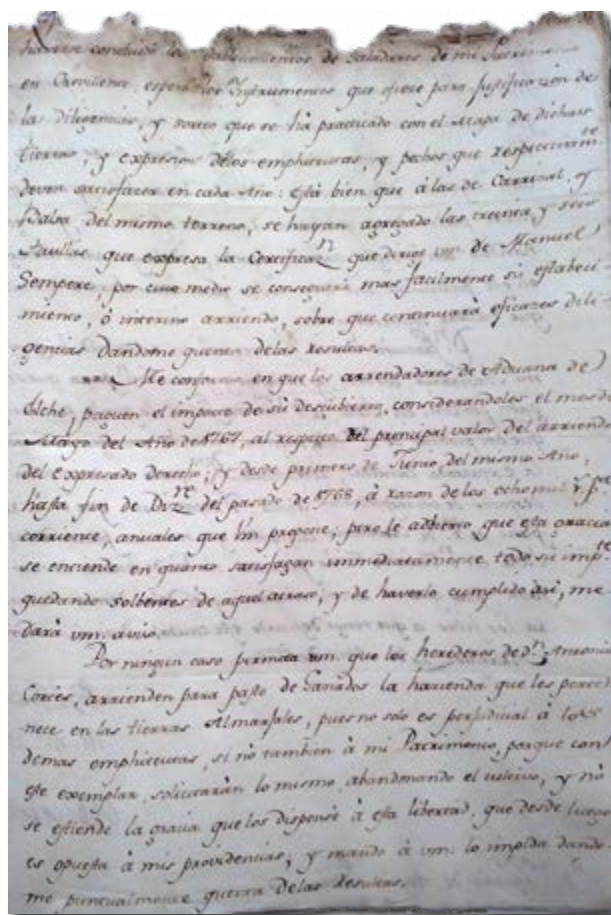 haverse concluido los establecimientos de Saladares de mi Patrimonio
en Crevillente, espero los Instrumentos que ofrece para Justificazion de
las diligencias, y sorteo que se há practicado con el Mapa de dichas
tierras, y expresion delos emphiteutas, y pechos que respectivam.te
deven satisfazer en cada Año: Está bien que á las de Carrizal, y
Balsa del mismo terreno, se hayan agregado las treinta, y seis
taullas que expresa la Certificaz.n que dirige vm. de Manuel
Sempere, por cuio medio se conseguirá mas facilmente sú estableci
miento, ó interino arriendo, sobre que continuará eficazes dili
gencias dandome quenta delas resultas.
Me conformo en que los arrendadores de Aduana de
Elche, paguen el importe de sú descubierto, considerandoles el mes de
Mayo del Año de 1767, al respecto del principal valor del arriendo
del expresado derecho; y desde primero de Junio, del mismo Año,
hásta fin de Diz.re del pasado de 1768, á razon de los ochomil r.s
corriente, anuales que Vm propone; pero le advierto que esta gracia
se entiende en quanto satisfagan immediatamente todo sú imp.te
quedando solventes de aquel atraso, y de haverlo cumplido asi, me
dará vm. aviso.
Por ningun caso permita vm. que los herederos de d.n Antonio
Cortés, arrienden para pasto de Ganados la hacienda que les perte
nece en las tierras Almarjales, pues no solo es perjudicial á los
demas emphiteutas, si nó tambien á mi Patrimonio, porque con
este exemplar, solicitarán lo mismo, abandonando el cultivo, y nó
se estiende la gracia que los dispensé á esta libertad, que desde luego
es opuesta á mis providencias; y mando á vm. lo impida dando
me puntualmente quenta delas resultas.